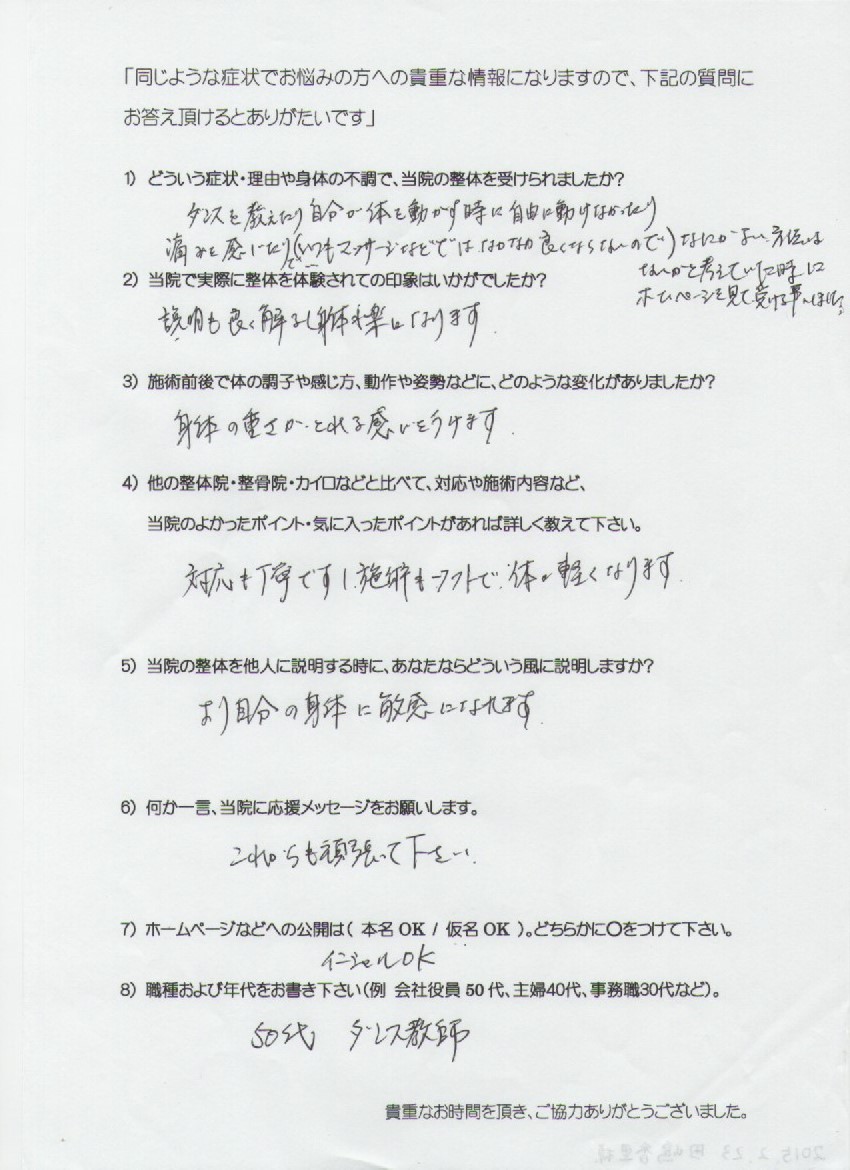 「同じような症状でお悩みの方への貴重な情報になりますので、下記の質問に
お答え頂けるとありがたいです」
1) どういう症状・理由や身体の不調で、当院の整体を受けられましたか?
ダンスを教えたり自分が体を動かす時に自由に動けなかったり
痛みを感じたり(いつもマッサージなどではなかなか良くならないので)なにかよい方法は
ないかと考えていた時に
ホームページを見て受ける事にしました
2) 当院で実際に整体を体験されての印象はいかがでしたか?
説明も良く解るし身体も楽になります.
3) 施術前後で体の調子や感じ方、動作や姿勢などに、どのような変化がありましたか?
身体の重さがとれる感じをうけます.
4) 他の整体院・整骨院・カイロなどと比べて、対応や施術内容など、
当院のよかったポイント・気に入ったポイントがあれば詳しく教えて下さい。
対応も丁寧ですし施術もソフトで体が軽くなります.
5) 当院の整体を他人に説明する時に、あなたならどういう風に説明しますか?
より自分の身体に敏感になれます.
6) 何か一言、当院に応援メッセージをお願いします。
これからも頑張って下さい.
7) ホームページなどへの公開は( 本名 OK / 仮名 OK )。どちらかに〇をつけて下さい。
イニシャルOK
8) 職種および年代をお書き下さい(例 会社役員 50 代、主婦40代、事務職30代など)。
50代 ダンス教師
貴重なお時間を頂き、ご協力ありがとうございました。
2015.2.23